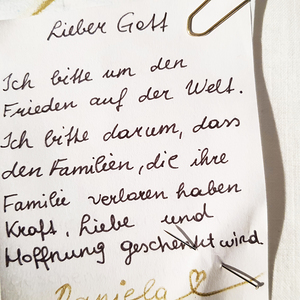 Lieber Gott
Ich bitte um den
Frieden auf der Welt.
Ich bitte darum, dass
den Familien, die ihre
Familie verloren haben
Kraft, Liebe und
Hoffnung geschenkt wird
Daniela